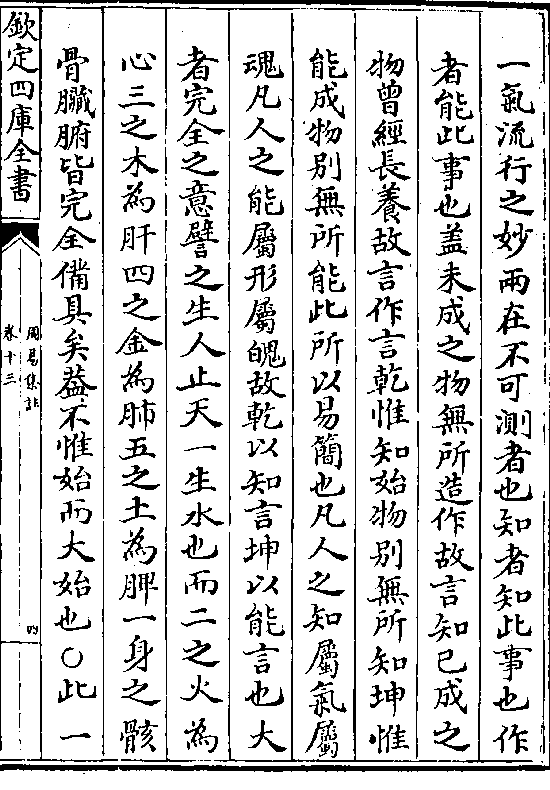 一氣流行之妙兩在不可測者也知者知此事也作
者能此事也盖未成之物無所造作故言知已成之
物曾經長養故言作言乾惟知始物别無所知坤惟
能成物别無所能此所以易簡也凡人之知屬氣屬
魂凡人之能屬形屬魄故乾以知言坤以能言也大
者完全之意譬之生人止天一生水也而二之火為
心三之木為肝四之金為肺五之土為脾一身之骸
骨臟腑皆完全備具矣葢不惟始而大始也○此一
欽定四庫全書
周易集註
卷十三
四